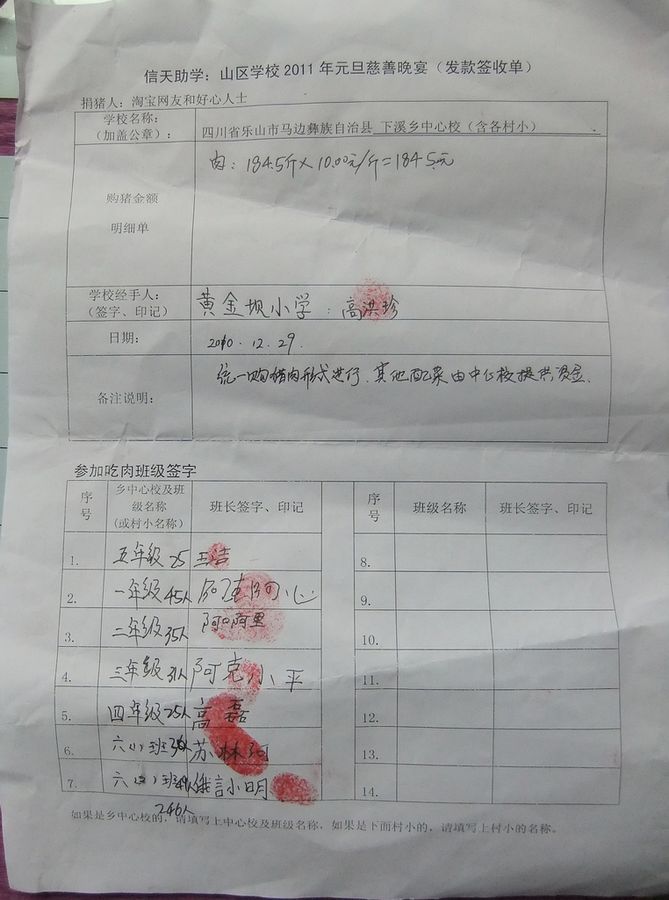 信天助学：山区学校 2011 年元旦慈善晚宴（发款签收单）
捐猪人：淘宝网友和好心人士
学校名称：
（加盖公章）：
四川省乐山市马边彝族自治县 下溪乡中心校（含各村小）
购猪金额
明细单
肉：184.5斤×10.00元/斤=1845元
学校经手人：
（签字、印记）
黄金坝小学：高洪珍
日期：
2010.12.29.
备注说明：
统一购猪肉形式进行.其他配菜由中心校提供资金.
参加吃肉班级签字
序号
乡中心校及班
级名称
（或村小名称）
班长签字、印记
序号
班级名称
班长签字、印记
1. 五年级 25 王洁
2. 一年级 45人
3. 二年级 35人
4. 三年级 31人 阿克小平
5. 四年级 25人 高磊
6. 六(1)班 苏林河
7. 六(2)班 小明
246人
8.
9.
10.
11.
12.
13.
14.
如果是乡中心校的，请填写上中心校及班级名称，如果是下面村小的，请填写上村小的名称。